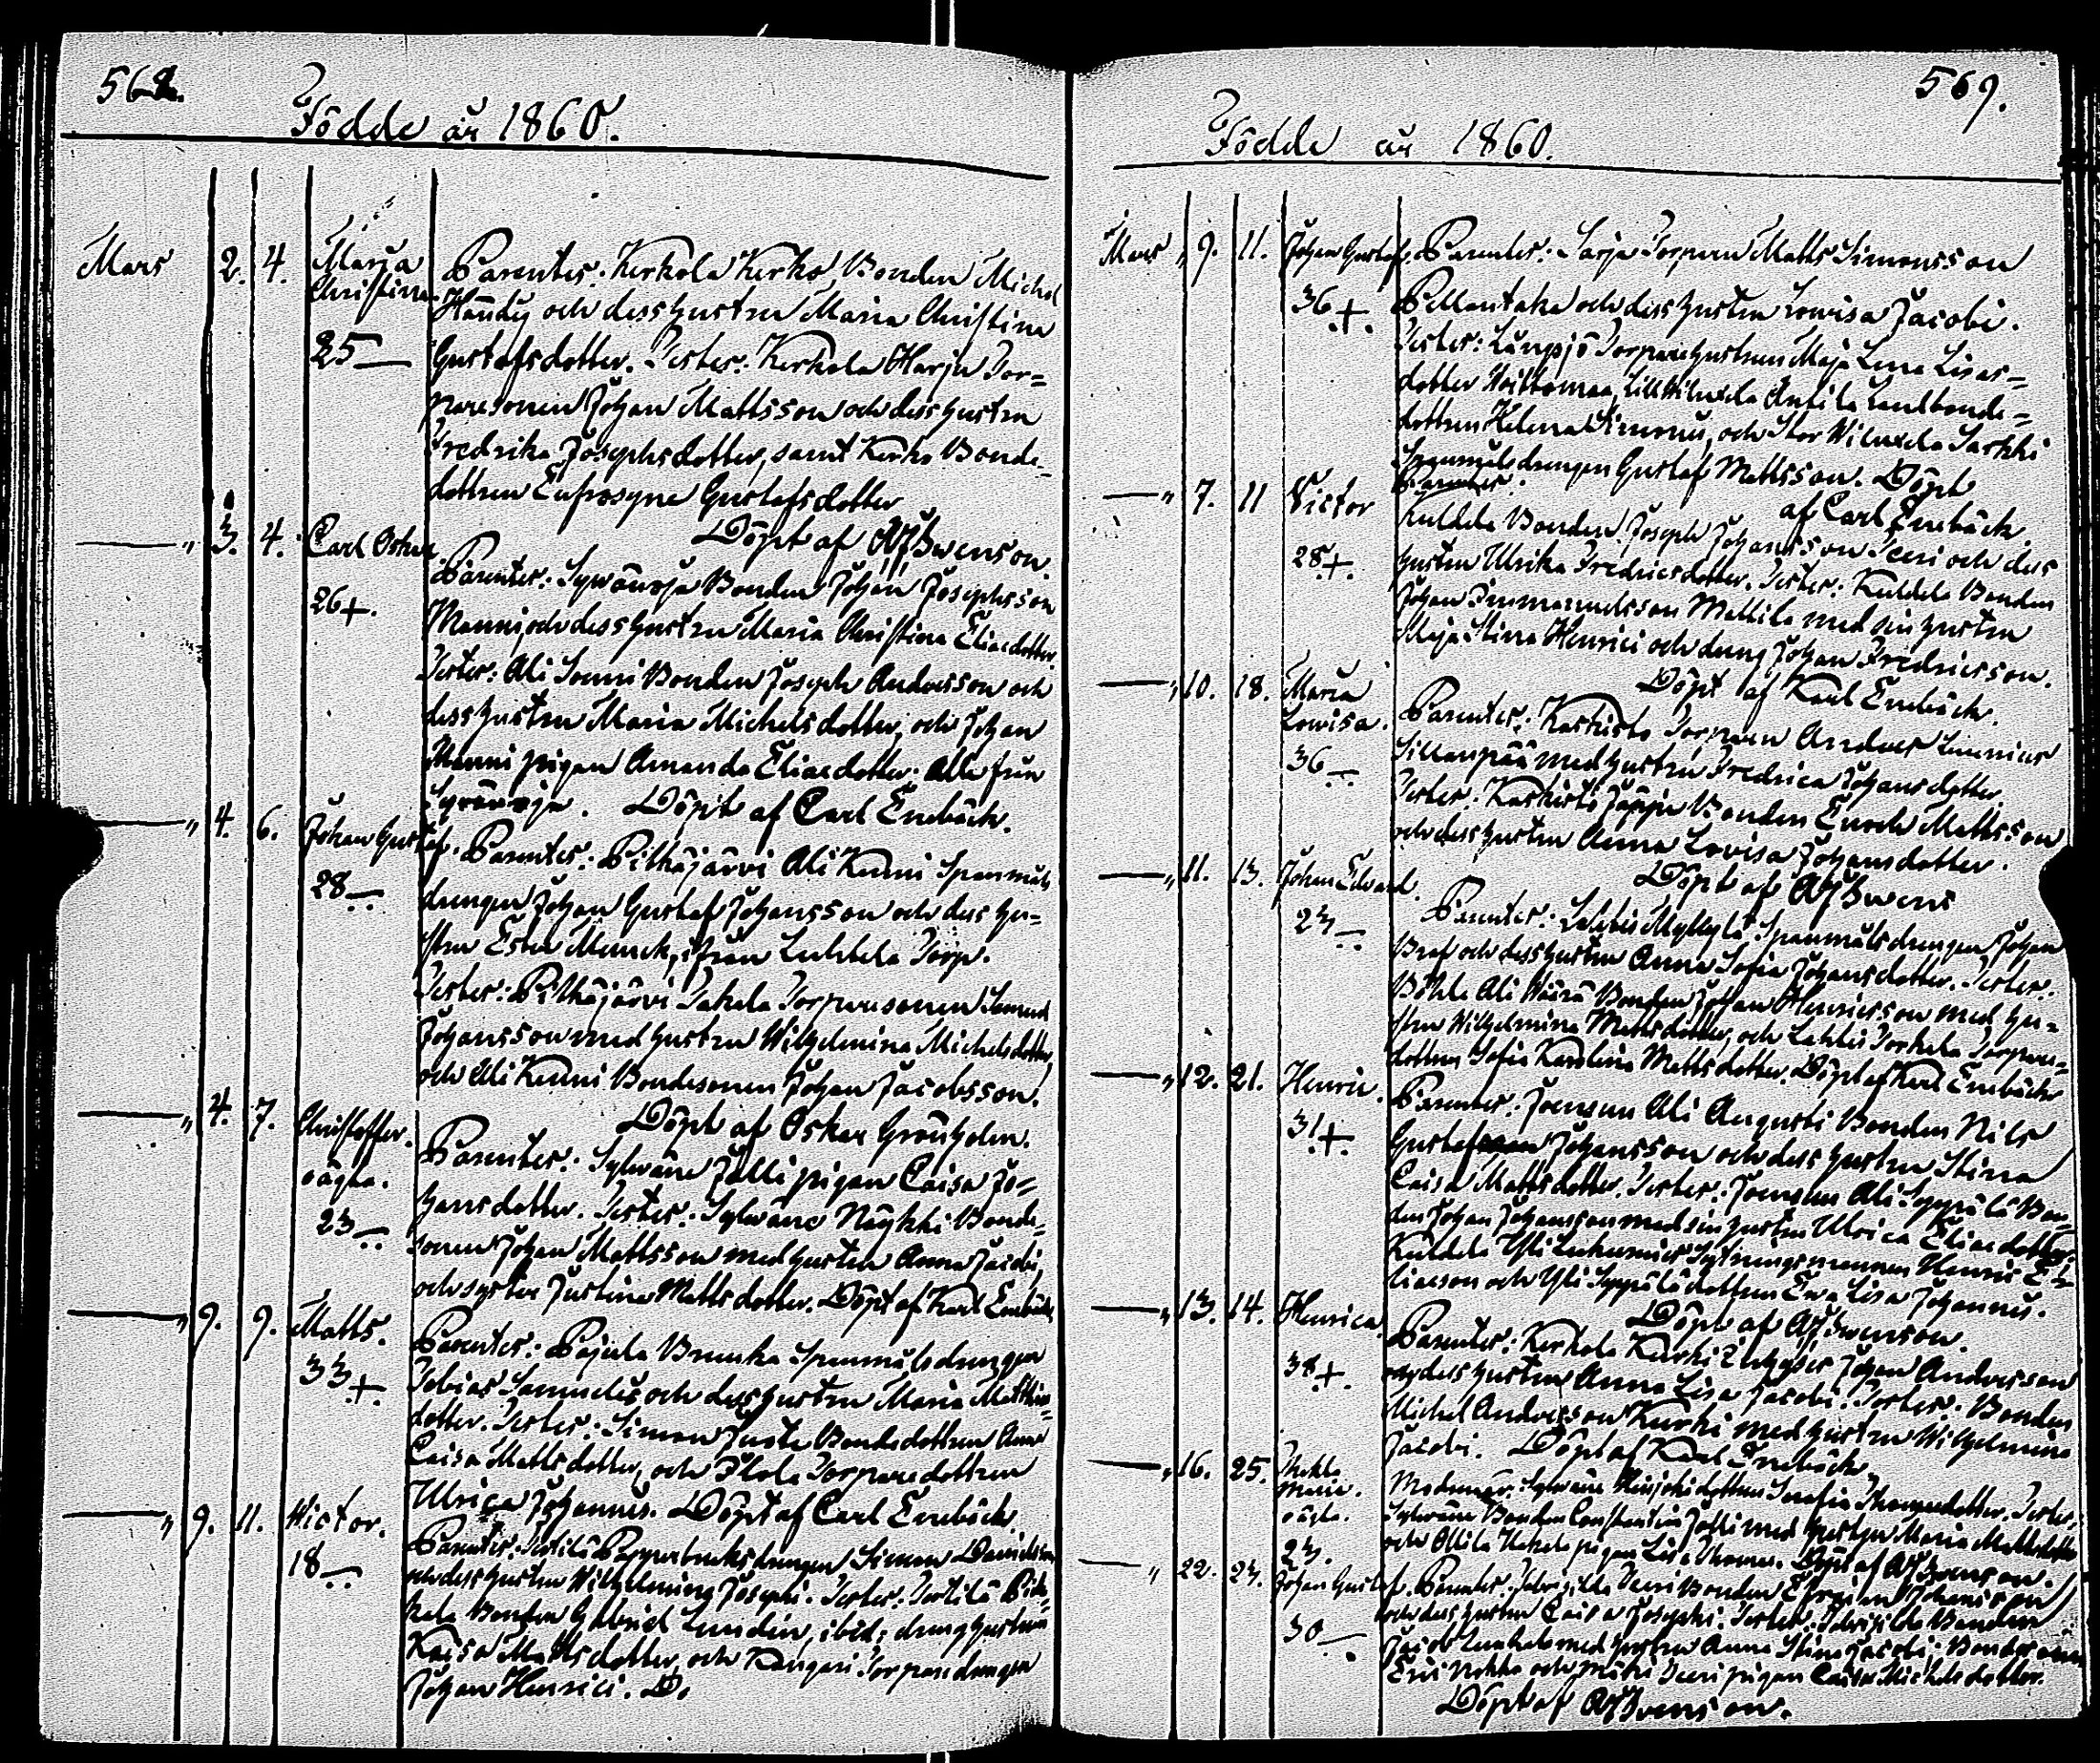 568.
Födde år 1860.
Mars 2. 4. Maria Christina 25 Parenter: Kerkola Kerko Bonden Michel
Handy och dess hustru Maria Christina
Gustafsdotter. Tester: Kerkola Harju Tor=
paresonen Johan Mattsson och dess hustru
Fredrika Josephsdotter, samt Kerko Bonde=
dottren Eufrosyne Gustafsdotter
Döpt af Swenson.
" 3. 4. Carl Oskar 26+. Parenter: Syvänoja Bonden Johan Josephsson
Manni och dess hustru Maria Christina Eliaedotter.
Tester: Ali Sonni Bonden Joseph Andersson och
dess hustru Maria Michelsdotter, och Johan
Manni pigan Amanda Eliaedotter. Alla från
Syvänoja. Döpt af Carl Enebäck.
" 4. 6. Johan Gustaf. 28 Parenter: Pitkäjärvi Ali Kenni Spanmåls
drengen Johan Gustaf Johansson och dess hu=
stru Ester Munck, ifrån Torp.
Tester: Pitkäjärvi Torparesonen
Johansson med hustru Wilhelmina Michelsdotter,
och Ali Kenni Bondesonen Johan Jacobsson.
Döpt af Oskar Grönholm.
" 4. 7. Christoffer. oägta. 23 Parenter: Sylvāne Jälli pigan Caisa Jo=
hansdotter. Tester: Sylvāne Näykki Bonde=
sonen Johan Mattsson med hustru Anna Jacobi,
och syster Justina Mattsdotter. Döpt af Karl Enebäck
" 9. 9. Matts. 33+ Parenter: Pajula Spanmålsdrengen
Tobias Samuelis och dess hustru Maria Matthiae=
dotter. Tester: Simon Juste Bondedottren Anna
Caisa Mattsdotter, och Torparedottren
Ulrica Johannis. Döpt af Carl Enebäck.
" 9. 11. Victor. 18 Parenter: Tertilä Pappersbruksdrengen Simon Davidsson
och dess hustru Wilhelmina Josephi. Tester: Tertilä
Bonden Gabriel Lundén, ibid; dreng hustrun
Kaisa Mattsdotter, och Kangari Torparedrengen
Johan Henrici. D.
569.
Födde år 1860.
Mars " 9. 11. Johan Gustaf. 36+. Parenter: Sarja Torparen Matts Simonsson
Pellontaka och dess hustru Lovisa Jacobi.
Tester: Långsjö Torparehustrun Maja Lena Lisas=
dotter Lill Wiluxela Antila Landbonde=
dottren Helena Simonis, och Stor Wiluxela Sarkki
Spanmålsdrengen Gustaf Mattsson. Döpt
af Carl Enebäck.
" 7. 11 Victor 28+. Parenter:
Kuldela Bonden Joseph Johansson Teeri och dess
hustru Ulrika Fredricsdotter. Tester: Kuldela Bonden
Johan Immanuelsson Mattila med sin hustru
Maja Stina Henrici och dreng Johan Fredricsson.
Döpt af Karl Enebäck.
" 10. 18. Maria Lovisa. 36 Parenter: Karkisto Torparen Anders Linnius
Sillanpää med hustru Fredrica Johansdotter.
Tester: Karkisto Jäppi Bonden Enoch Mattsson
och dess hustru Anna Lovisa Johansdotter.
Döpt af Swens
" 11. 13. Johan Edvard. 23 Parenter: Spanmålsdrengen Johan
Braf och dess hustru Anna Sofia Johansdotter. Tester:
Böhle Ali Bonden Johan Henricsson med hu=
stru Wilhelmina Mattsdotter, och Torpare=
dottren Sofia Karolina Mattsdotter. Döpt af Karl Enebäck
" 12. 21. Henric. 31+. Parenter: Joensuu Ali Augusti Bonden Nils
Gustaf Johansson och dess hustru Stina
Caisa Mattsdotter. Tester: Joensuu Ali Seppälä Bon=
den Johan Johansson med sin hustru Ulrica Eliaedotter,
Kuldela Yli Sytningsmannen Henric E=
liaeson och Yli Seppälä dottren Eva Lisa Johannis.
Döpt af Swenson.
" 13. 14. Henrica. 38+. Parenter: Kerkola Kurki Inhyses Johan Andersson
och dess hustru Anna Lisa Jacobi. Tester: Bonden
Michel Andersson Kurki med hustru Wilhelmina
Jacobi. Döpt af Karl Enebäck.
" 16. 25. Thekla Maria. oägta. 23. Modern är: Sylvāne dottren Serafia Thomaedotter. Tester:
Sylvāne Bonden Constantin Jälli med hustru Maria Mattsdotter
och Ollila pigan Lisa Thomae. Döpt af Swenson.
" 22. 23. Johan Gustaf. 30 Parenter: Teeri Bonden Efraim Johansson
och dess hustru Caisa Josephi. Tester: Bonden
Jacob med hustru Anna Stina Jacobi, Bondesonen
Eric Nohka och Teeri pigan Caisa Michelsdotter.
Döpt af Swenson.